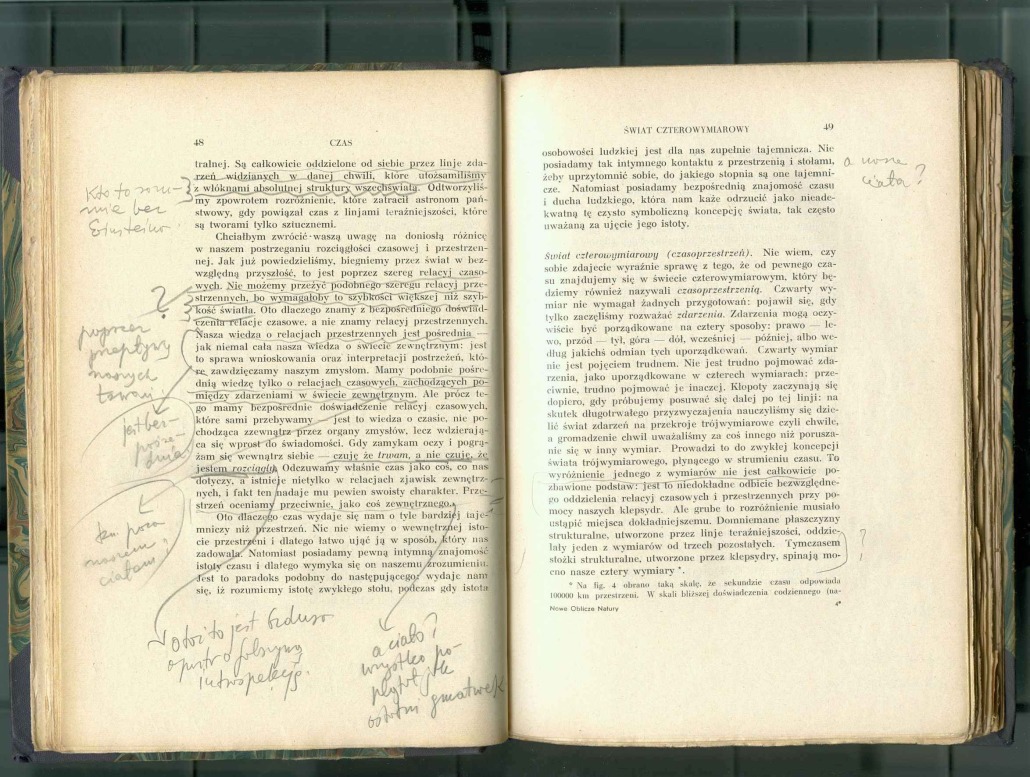 48
CZAS
tralnej. Są całkowicie oddzielone od siebie przez linje zda-
rzeń widzianych w danej chwili, które utożsamiliśmy
z włóknami absolutnej struktury wszechświata. Odtworzyliś-
my zpowrotem rozróżnienie, które zatracił astronom pań-
stwowy, gdy powiązał czas z linjami teraźniejszości, które
są tworami tylko sztucznemi.
Chciałbym zwrócić waszą uwagę na doniosłą różnicę
w naszem postrzeganiu rozciągłości czasowej i przestrzen-
nej. Jak już powiedzieliśmy, biegniemy przez świat w bez-
względną przyszłość, to jest poprzez szereg relacyj czaso-
wych. Nie możemy przeżyć podobnego szeregu relacyj prze-
strzennych, bo wymagałoby to szybkości większej niż szyb-
kość światła. Oto dlaczego znamy z bezpośredniego doświad-
czenia relacje czasowe, a nie znamy relacyj przestrzennych.
Nasza wiedza o relacjach przestrzennych jest pośrednia —
jak niemal cała nasza wiedza o świecie zewnętrznym: jest
to sprawa wnioskowania oraz interpretacji postrzeżeń, któ-
re zawdzięczamy naszym zmysłom. Mamy podobnie pośre-
dnią wiedzę tylko o relacjach czasowych, zachodzących po-
między zdarzeniami w świecie zewnętrznym. Ale prócz te-
go mamy bezpośrednie doświadczenie relacyj czasowych,
które sami przebywamy — jest to wiedza o czasie, nie po-
chodząca zzewnątrz przez organy zmysłów, lecz wdzierają-
ca się wprost do świadomości. Gdy zamykam oczy i pogrą-
żam się wewnątrz siebie — czuję że trwam, a nie czuję, że
jestem rozciągła. Odczuwamy właśnie czas jako coś, co nas
dotyczy, a istnieje nietylko w relacjach zjawisk zewnętrz-
nych, i fakt ten nadaje mu pewien swoisty charakter. Prze-
strzeń oceniamy przeciwnie, jako coś zewnętrznego.
Oto dlaczego czas wydaje się nam o tyle bardziej taje-
mniczy niż przestrzeń. Nic nie wiemy o wewnętrznej isto-
cie przestrzeni i dlatego łatwo ująć ją w sposób, który nas
zadowala. Natomiast posiadamy pewną intymną znajomość
istoty czasu i dlatego wymyka się on naszemu zrozumieniu.
Jest to paradoks podobny do następującego: wydaje nam
się, iż rozumiemy istotę zwykłego stołu, podczas gdy istota
Kto to rozu-
mie bez
Einsteina
?
poprzez
naszych
jest bez-
pośre-
dnia
poza
naszem
ciałem
Otóż to jest
introspekcję
a ciało?
wszystko po-
ŚWIAT CZTEROWYMIAROWY
49
osobowości ludzkiej jest dla nas zupełnie tajemnicza. Nie
posiadamy tak intymnego kontaktu z przestrzenią i stołami,
żeby uprzytomnić sobie, do jakiego stopnia są one tajemni-
cze. Natomiast posiadamy bezpośrednią znajomość czasu
i ducha ludzkiego, która nam każe odrzucić jako nieade-
kwatną tę czysto symboliczną koncepcję świata, tak często
uważaną za ujęcie jego istoty.
a nasze
ciała?
Świat czterowymiarowy (czasoprzestrzeń). Nie wiem, czy
sobie zdajecie wyraźnie sprawę z tego, że od pewnego cza-
su znajdujemy się w świecie czterowymiarowym, który bę-
dziemy również nazywali czasoprzestrzenią. Czwarty wy-
miar nie wymagał żadnych przygotowań: pojawił się, gdy
tylko zaczęliśmy rozważać zdarzenia. Zdarzenia mogą oczy-
wiście być porządkowane na cztery sposoby: prawo — le-
wo, przód — tył, góra — dół, wcześniej — później, albo we-
dług jakichś odmian tych uporządkowań. Czwarty wymiar
nie jest pojęciem trudnem. Nie jest trudno pojmować zda-
rzenia, jako uporządkowane w czterech wymiarach: prze-
ciwnie, trudno pojmować je inaczej. Kłopoty zaczynają się
dopiero, gdy próbujemy posuwać się dalej po tej linji: na
skutek długotrwałego przyzwyczajenia nauczyliśmy się dzie-
lić świat zdarzeń na przekroje trójwymiarowe czyli chwile,
a gromadzenie chwil uważaliśmy za coś innego niż porusza-
nie się w inny wymiar. Prowadzi to do zwykłej koncepcji
świata trójwymiarowego, płynącego w strumieniu czasu. To
wyróżnienie jednego z wymiarów nie jest całkowicie po-
zbawione podstaw: jest to niedokładne odbicie bezwzględne-
go oddzielenia relacyj czasowych i przestrzennych przy po-
mocy naszych klepsydr. Ale grube to rozróżnienie musiało
ustąpić miejsca dokładniejszemu. Domniemane płaszczyzny
strukturalne, utworzone przez linje teraźniejszości, oddzie-
lały jeden z wymiarów od trzech pozostałych. Tymczasem
stożki strukturalne, utworzone przez klepsydry, spinają mo-
cno nasze cztery wymiary *.
?
* Na fig. 4 obrano taką skalę, że sekundzie czasu odpowiada
100000 km przestrzeni. W skali bliższej doświadczenia codziennego (na-
Nowe Oblicze Natury
4*